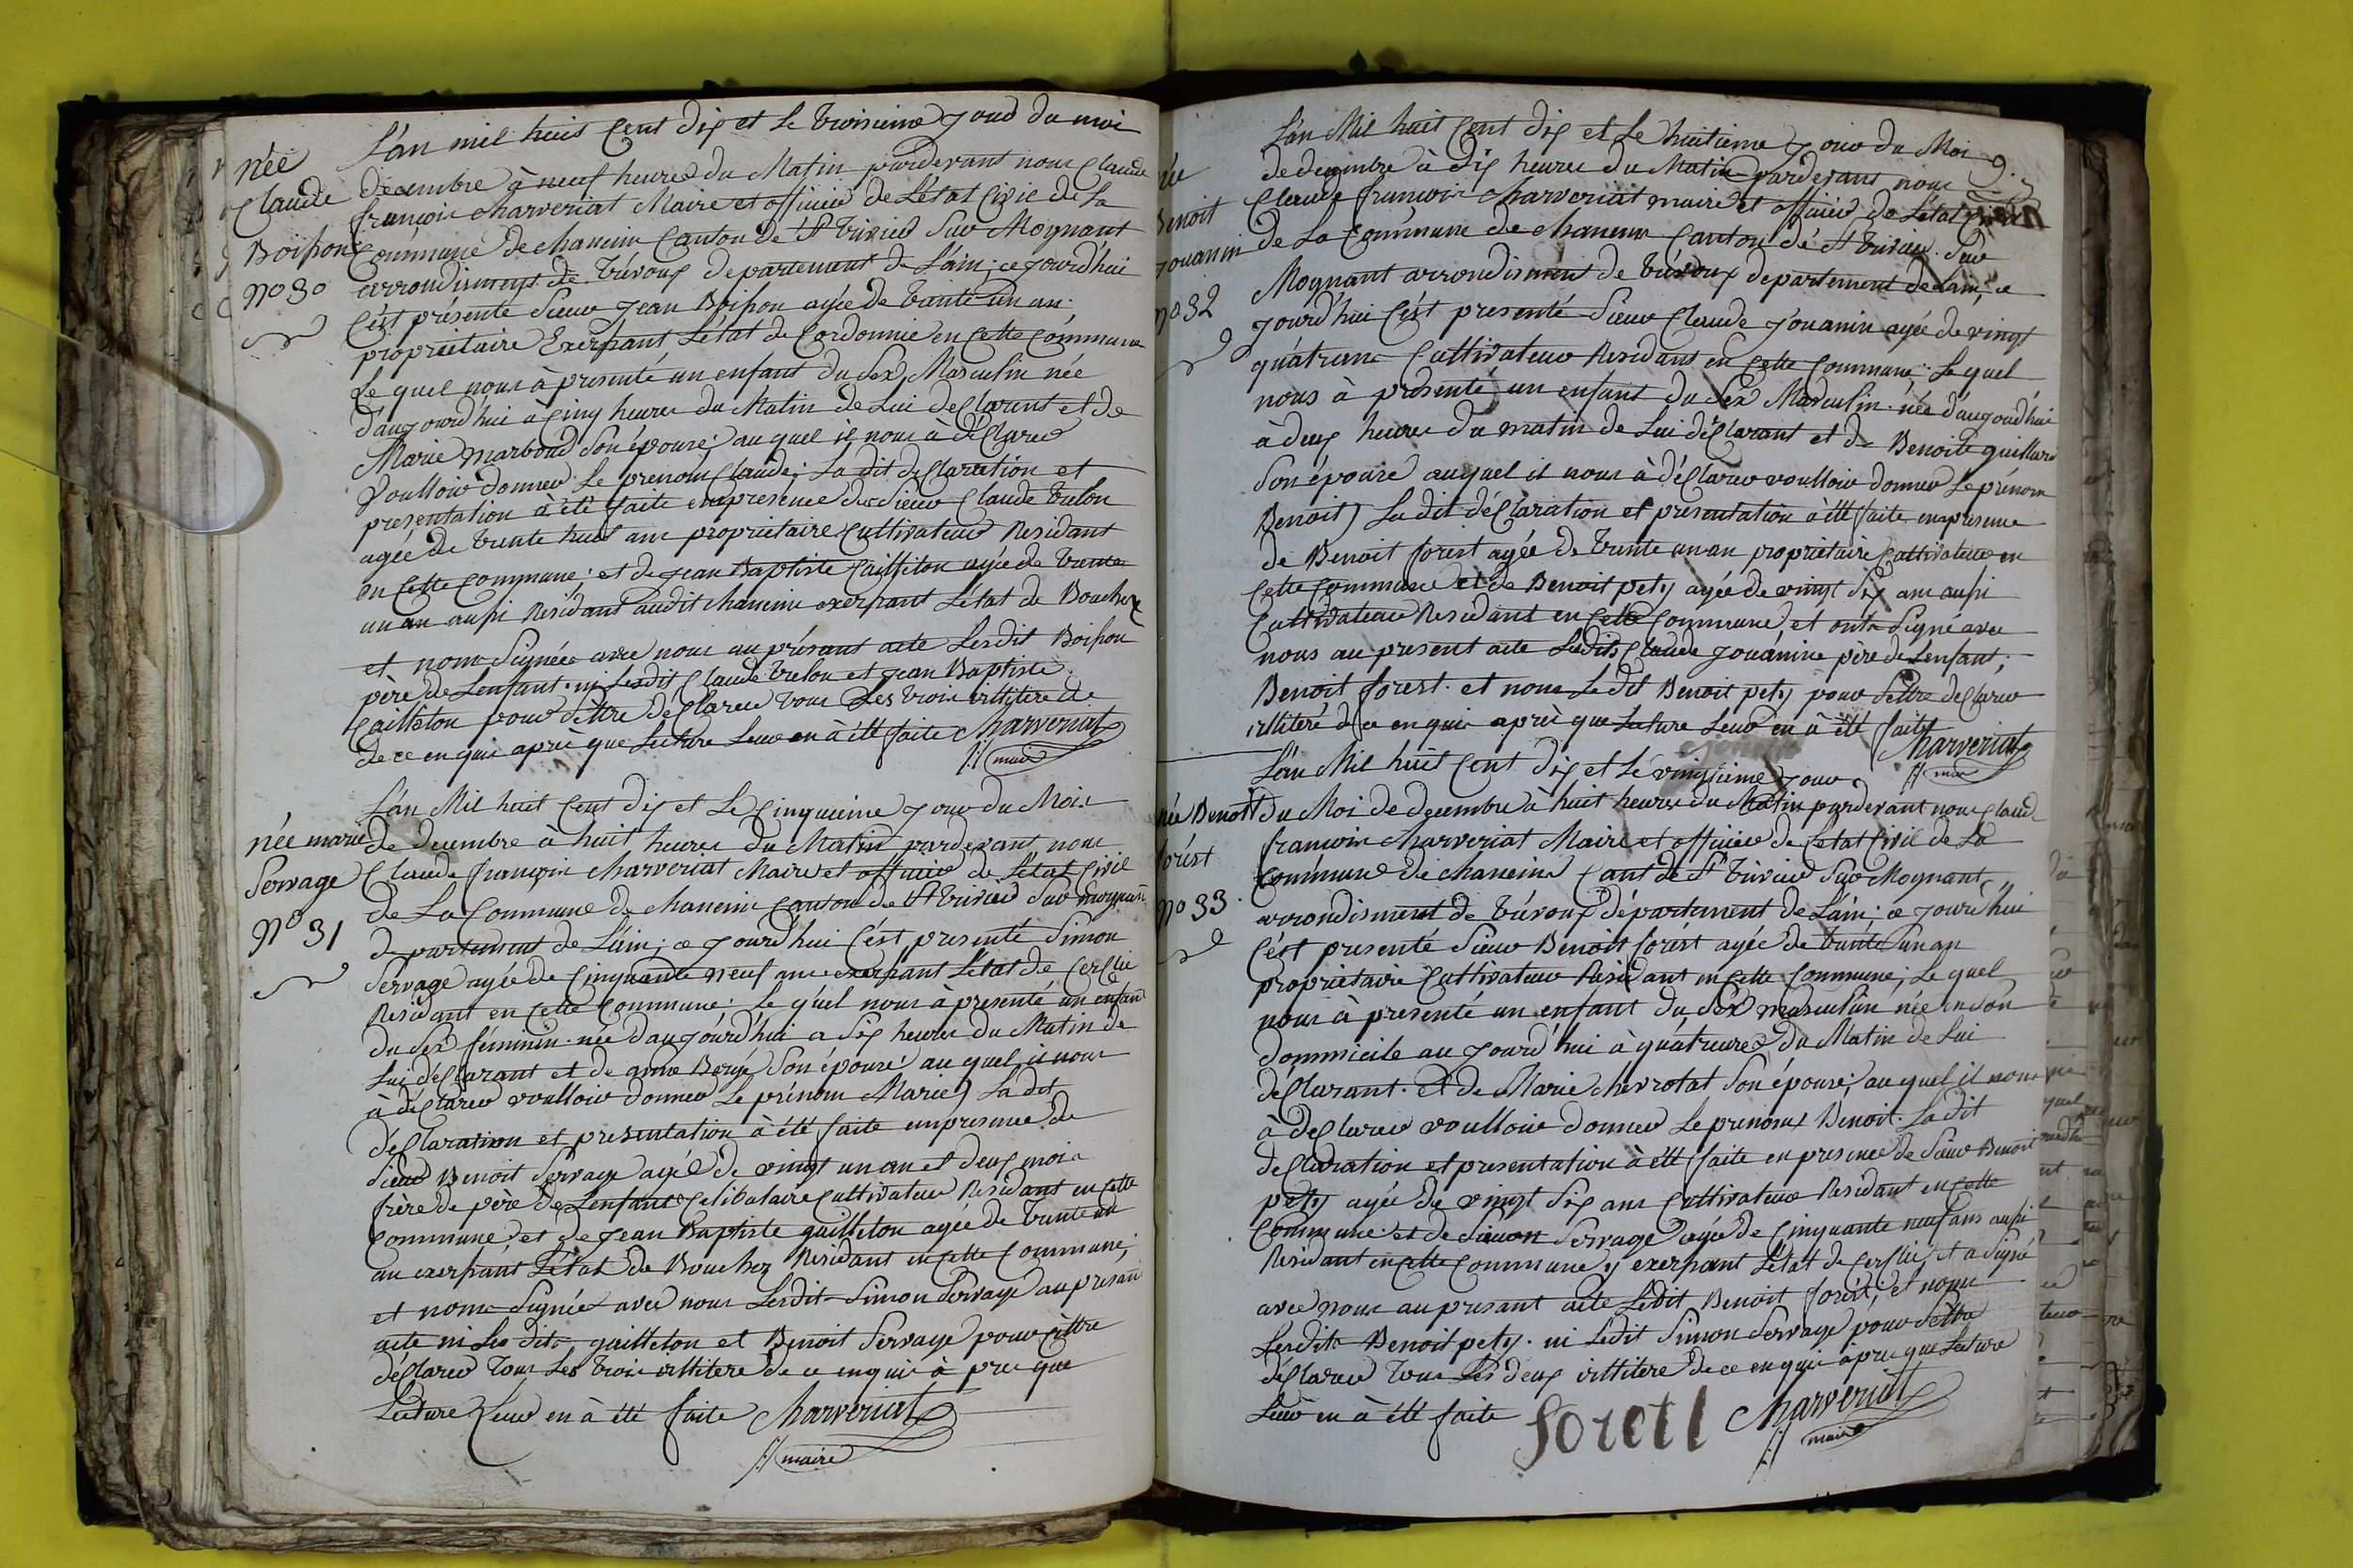 née
Claude
Boisson
no 30
L'an mil huit Cent dix et Le troisieme jour du moi
decembre à neuf heures du Matin pardevant nous Claude
françois Charveriat Maire et officier de L'état Civil de La
Commune de chanein Canton de St trivier Sur Mognant
arrondisment de trévoux departement de L'ain; ce jourd'hui
C'ést présente Sieur jean Boisson agée de trante un an
propriétaire Exersant L'état de Cordonnie en Cette Commune
Le quel nous à presenté un enfant du Sex Masculin née
d'aujourd'hui à Cinq heures du Matin de Lui declarant et de
Marie Marboud Son épouse; au quel il nous à déclarer
Voulloir donner Le prenom Claude; La dit declaration et
presentation à été faite enpresence du Sieur Claude trelon
agée de trente huit ans propriétaire Cultivateur Residant
en Cette commune; et de jean Baptiste Cailleton agée de trante
un an aussi Residant audit chanein exersant L'état de Boucher
et nom Signée avec nous au présant acte Lesdit Boisson
père de L'enfant ni Lesdit Claude trelon et jean Baptiste
Cailleton pour S'ettre déClarer tous Les trois illitere de
de ce enquis après que Lecture Leur en à été faite Charveriat
maire
née marie
Servage
no 31
L'an Mil huit Cent dix et Le Cinquieme jour du Mois
de decembre à huit heures du Matin pardevant nous
Claude françois Charveriat Maire et officier de L'état Civil
de La Commune de chanein Canton de St trivier Sur mognant
departement de L'ain; ce jourd'hui C'ést presenté Simon
Servage agée de Cinquante neuf ans exersant L'état de Cerclie
Residant en Cette Commune; Le quel nous à presenté un enfant
du Sex féminin née d'aujourd'hui a Six heures du Matin de
Lui déClarant et de anne Son épouse au quel il nous
à déClarer voulloir donner Le prénom Marie) La dit
déClaration et presentation à été faite enpresence de
Sieur Benoit Servage agée de vingt un an et deux mois
frère de père de L'enfant Celibataire Cultivateur Residant en Cette
Commune et de jean Baptiste quilleton agée de trente un
an exersant L'état de Boucher Residant en Cette Commune;
et nom Signée avec nous Lesdit Simon Servage au presant
acte ni Les dits quilleton et Benoit Servage pour S'ettre
déClarer tous Les trois illitere de ce enquis à pres que
Lecture Leur en à été faite Charveriat
maire
née
Benoit
jouanin
no 32
L'an Mil huit Cent dix et Le huitieme jour du Moi
de decembre à dix heures du Matin pardevant nous
Claude françois Charveriat maire et officier de L'état Civil
de La Commune de chanein Canton de St trivier Sur
Mognant arrondisment de trévoux departement de L'ain; ce
jourd'hui C'ést presenté Sieur Claude jouanin agée de vingt
quatre ans Cultivateur Residant en Cette Commune; Le quel
nous à présenté un enfant du Sex Masculin née d'aujourd'hui
à deux heures du matin de Lui déClarant et de Benoite
Son épouse auquel il nous à déClarer voulloir donner Le prénom
Benoit) La dit déClaration et presentation à été faite enpresence
de Benoit forest agée de trente un an propriétaire Cultivateur en
Cette Commune et de Benoit pety agée de vingt Six ans aussi
Cultivateur Residant en Cette Commune et onts Signé avec
nous au present acte Lesdits Claude jouanine père de L'enfant;
Benoit forest et nom Le dit Benoit pety pour S'ettre déClarer
illiteré de ce en quis après que Lecture Leur en à été faite
Charveriat
maire
née Benoit
forést
no 33
L'an Mil huit Cent dix et Le vingtieme jour
du Moi de decembre à huit heures du Matin pardevant nous Claude
françois Charveriat Maire et officier de L'état Civil de La
Commune de chanein Cant de St trivier Sur Mognant
arrondisment de trévoux département de L'ain; ce jourd'hui
C'ést presenté Sieur Benoit forést agée de trante un an
propriétaire Cultivateur Residant en Cette Commune; Le quel
nous à presenté un enfant du Sex masculin née en Son
dommicile au jourd'hui à quatreures du Matin de Lui
déClarant et de Marie chevrotat Son épouse; au quel il nous
à déClarer voulloir donner Le prenom Benoit. La dit
déClaration et presentation à été faite en presence de Sieur Benoit
pety agée de vingt Six ans Cultivateur Residant en Cette
Commune et de Simon Servage agée de Cinquante neuf ans aussi
Residant en Cette Commune y exersant L'état de Cerclie, et a Signé
avec nous au presant acte Ledit Benoit forést; et nom
Lesdits Benoit pety ni Ledit Simon Servage pour S'ettre
déClarer tous Les deux illitere de ce enquis à pres que Lecture
Leur en à été faite forett Charveriat
maire